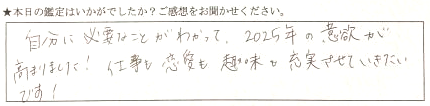 ★本日の鑑定はいかがでしたか？ご感想をお聞かせください。
自分に必要なことがわかって、2025年の意欲が
高まりました！仕事も恋愛も趣味も充実させていきたい
です！